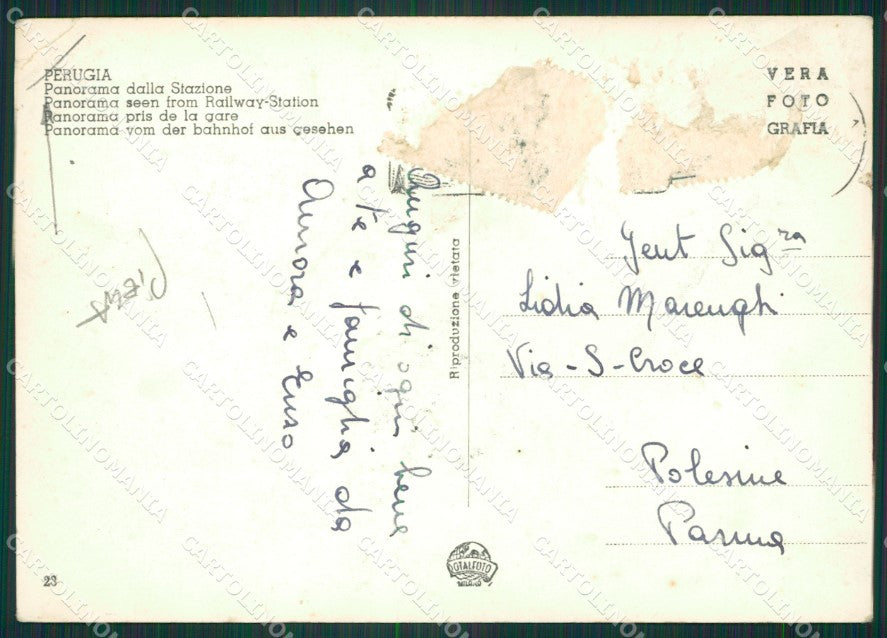 PERUGIA
Panorama dalla Stazione
Panorama seen from Railway-Station
Panorama pris de la gare
Panorama vom der bahnhof aus gesehen
VERA
FOTO
GRAFIA
Auguri di ogni bene
a te e famiglia da
Aurora e Enso
Riproduzione vietata
Gent Sigra
Lidia Marenghi
Via - S - Croce
Polesine
Parma
TOTALFOTO
MILANO
23
CARTOLINOMANIA